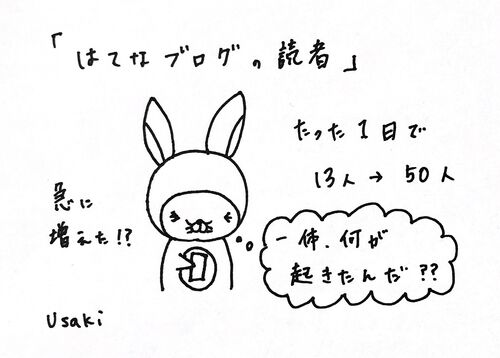 「はてなブログの読者」
たった1日で
13人→50人
急に
増えた!?
一体、何が
起きたんだ??
Usaki